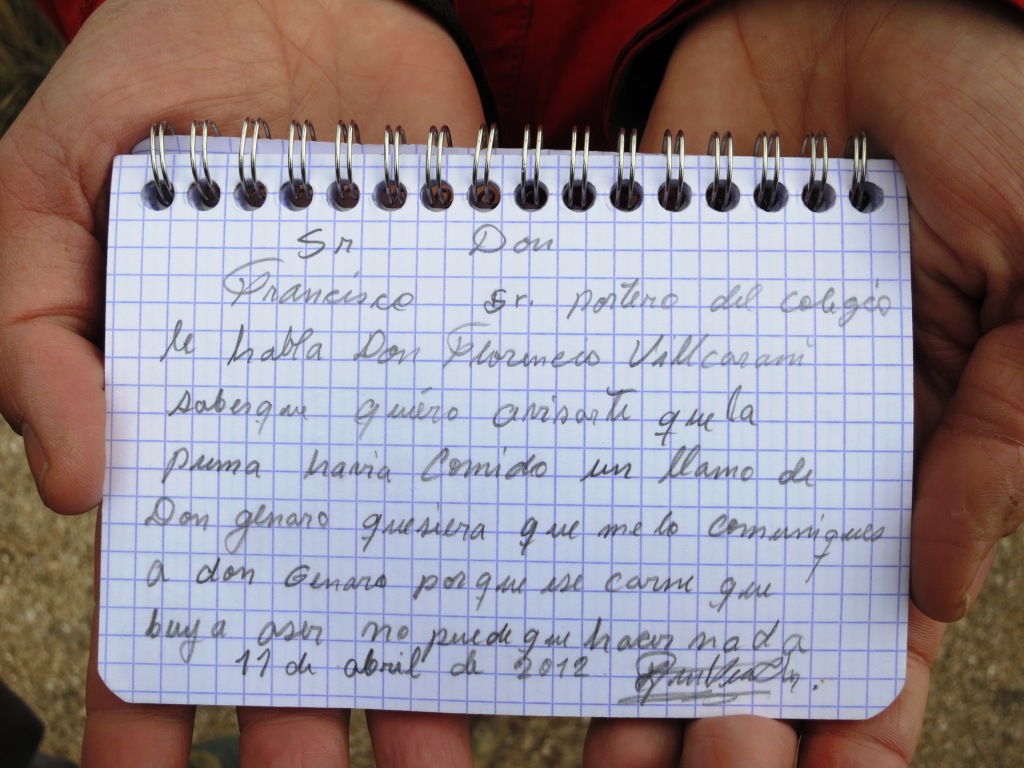 Sr Don
Francisco Sr. portero del colegio
le habla Don Florencio Villcarani
saberque quiero avisarte que la
puma havia Comido un llamo de
Don genaro quesiera que me lo comuniques
a don Genaro porque ese carne que
buy a aser no puede que hacer nada
11 de abril de 2012